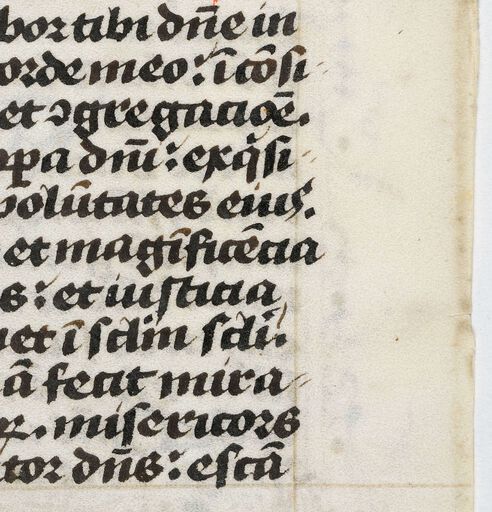 bor tibi dn̄e in
orde meo: ī cōsi-
et ɔgregatioē.
opa dn̄i: exq̄si-
volūtates eius.
et magīficētia
s: et iusticia
net ī sclm̄ scli.
ā fecit mira-
r. misericors
tor dn̄s: escā